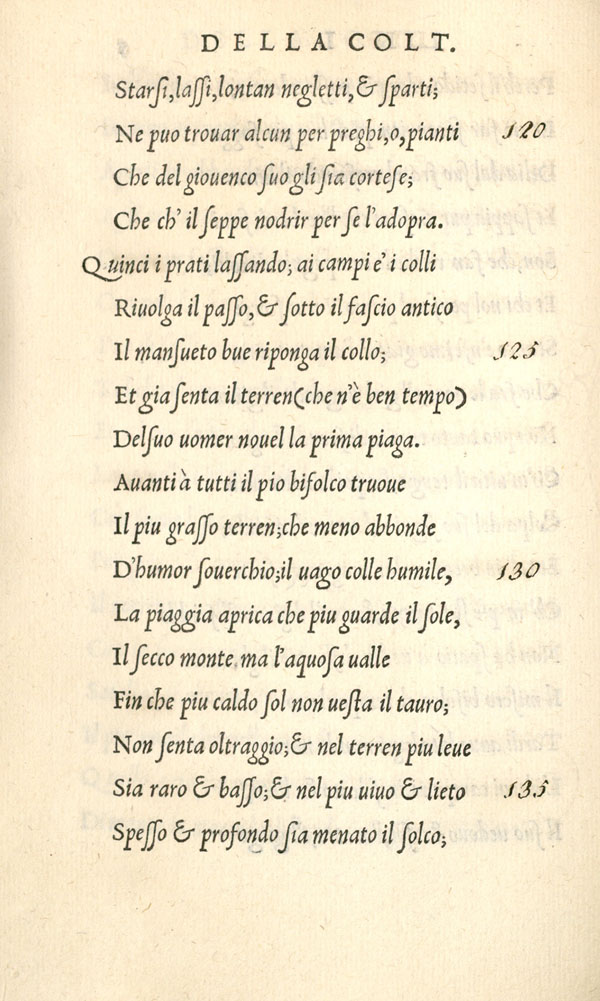 DELLA COLT.
Starſi,laſſi,lontan negletti,& ſparti;
Ne puo trouar alcun per preghi,o,pianti 120
Che del giouenco ſuo gli ſia corteſe;
Che ch' il ſeppe nodrir per ſe l'adopra.
Quinci i prati laſſando; ai campi e' i colli
Riuolga il paſſo,& ſotto il faſcio antico
Il manſueto bue riponga il collo; 125
Et gia ſenta il terren(che n'è ben tempo)
Delſuo uomer nouel la prima piaga.
Auanti à tutti il pio bifolco truoue
Il piu graſſo terren;che meno abbonde
D'humor ſouerchio;il uago colle humile, 130
La piaggia aprica che piu guarde il ſole,
Il ſecco monte, ma l'aquoſa ualle
Fin che piu caldo ſol non ueſta il tauro;
Non ſenta oltraggio;& nel terren piu leue
Sia raro & baſſo;& nel piu uiuo & lieto 135
Speſſo & profondo ſia menato il ſolco;